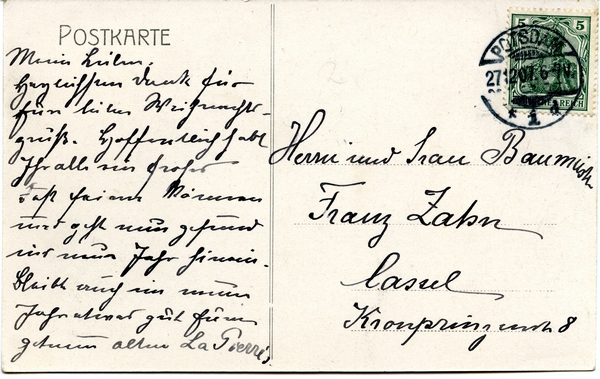 POSTKARTE
Meine Lieben.
Herzlichsten Dank für
Eure lieben Weihnachts-
grüße. Hoffentlich habt
Ihr alle ein frohes
Fest feiern können
und geht nun gesund
ins neue Jahr hinein.
Bleibt auch im neuen
Jahr etwas gut Euren
getreuen alten La Pierre's
5 5
POTSDAM
27.12.07. 6-7 N.
* 1 d
Herrn und Frau Baumeister
Franz Zahn
Cassel
Kronprinzenstr 8